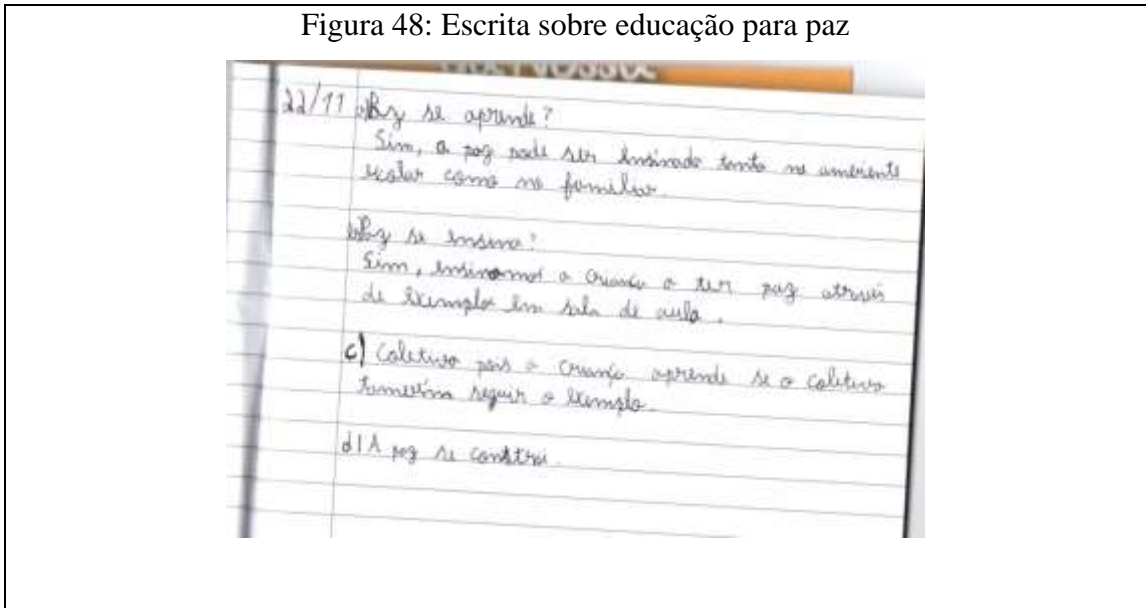 Figura 48: Escrita sobre educação para paz
22/11 a) Paz se aprende?
Sim, a paz pode ser ensinado tanto no ambiente
escolar como no familiar.
b) Paz se ensina?
Sim, ensinamos a criança a ter paz através
de exemplos em sala de aula.
c) Coletivo pois a criança aprende se o coletivo
também seguir o exemplo.
d) A paz se constroi.